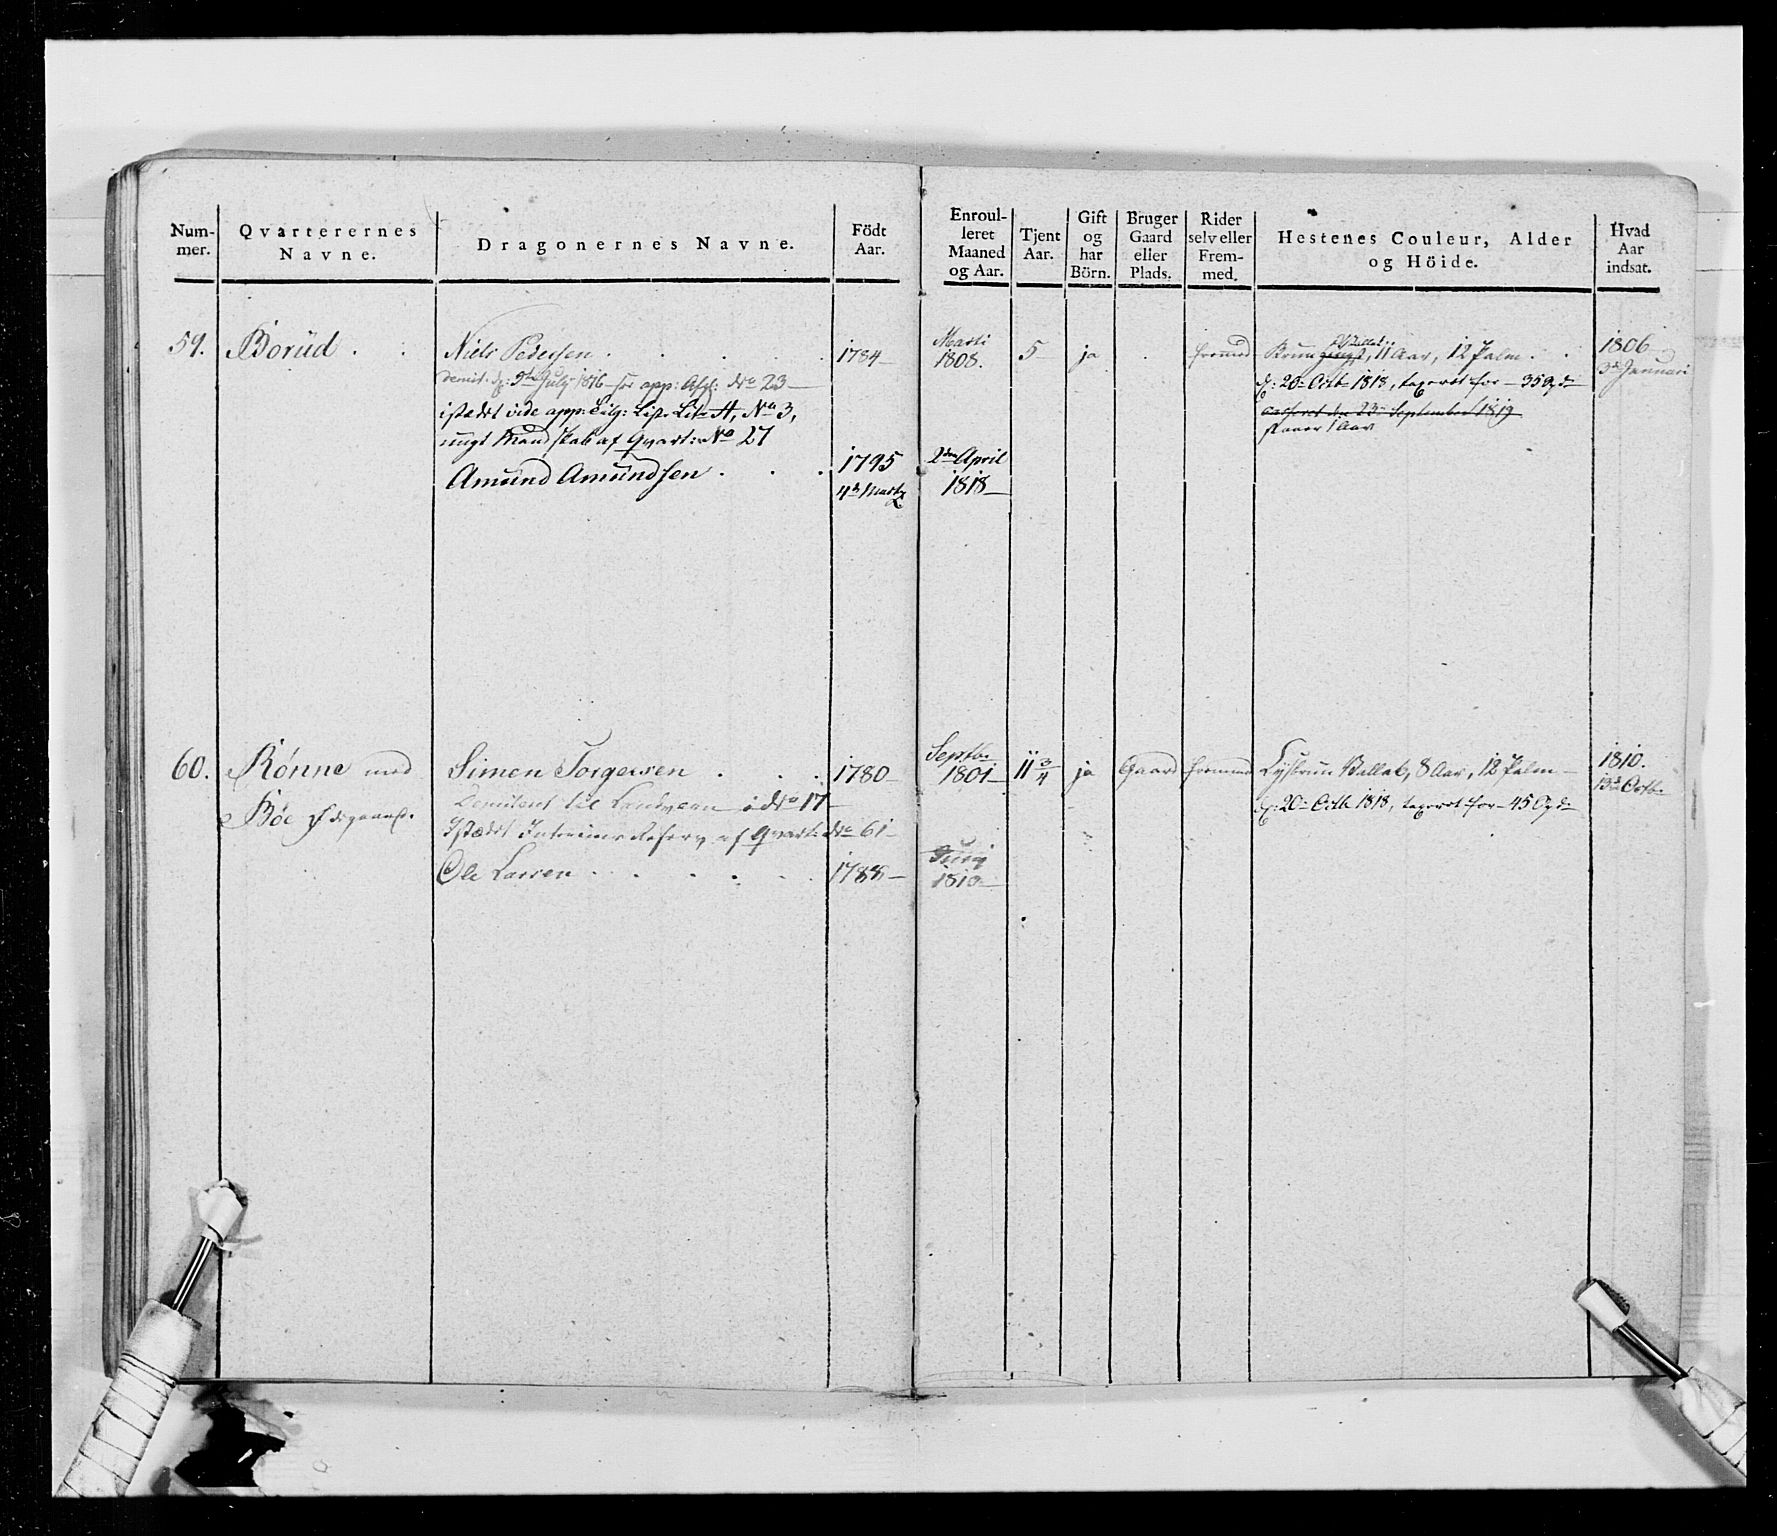 Num-
mer.
Qvarterernes
Navne.
Dragonernes Navne.
Födt
Aar.
Enroul-
leret
Maaned
og Aar.
Tjent
Aar.
Gift
og
har
Börn.
Bruger
Gaard
eller
Plads.
Rider
selv eller
Frem-
med.
Hestenes Couleur, Alder
og Höide.
Hvad
Aar
indsat.
59. Borüd . .
Niels Pedersen . . . . .
demit: d: 9de July 1816 for app: Afsk: No 23
istædet vide app: Lit A, No 3,
ungt Mandskab af Qvart: No 27
Amünd Amündsen . . .
1784
1795
4de Martz
Marti
1808.
2den April
1818
5
ja
.
fremmed
Brun Vallak, 11 Aar, 12 Palm . .
d: 20 Octb 1818, taxeret for 35
casseret den 23 September 1819
1 Aar
1806
3de Januari
60. Rønne med
Bøe
Simen Torgersen . . .
Demitent til Landværn i No 17
Istædet Interims Reserv af Qvart: No 61
Ole Larsen . . . . .
1780
1788
Septbr
1801
Juny
1810
11 3/4
ja
Gaard
fremmed
Lysbrun Vallak, 8 Aar, 12 Palm
d: 20 Octb 1818, taxeret for 45
1810.
13de Octb